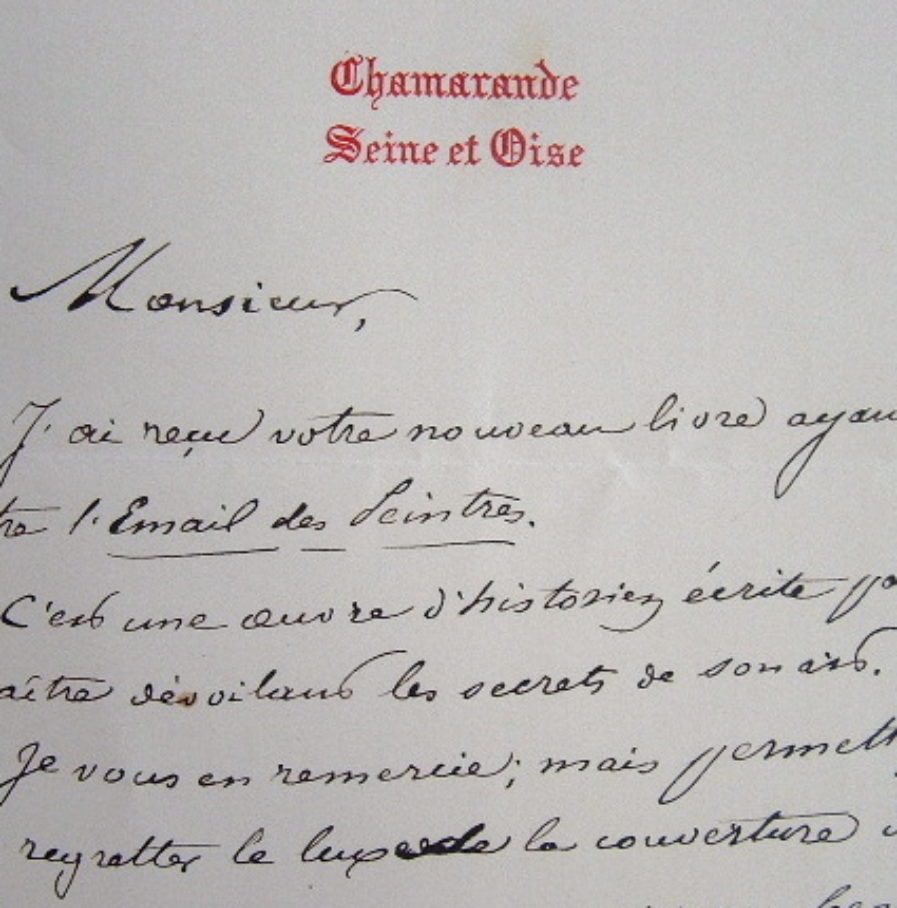 Chamarande
Seine et Oise
Monsieur,
J'ai reçu votre nouveau livre ayan
tre l'Email des Peintres.
C'est une œuvre d'historien écrite pa
aître dévoilant les secrets de son art.
Je vous en remercie; mais permett
regretter le luxe de la couverture